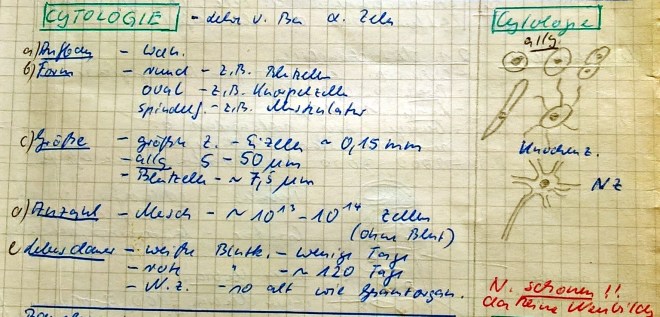 CYTOLOGIE - Lehre v. Bau d. Zelle
a) Aufbau -
b) Form - rund - z.B. Blutzellen
oval - z.B. Knorpelzelle
spindelf. - z.B. Muskulatur
c) Größe - größte Z. - Eizelle ~ 0,15 mm
- allg 5 - 50 µm
- Blutzelle - ~ 7,5 µm
d) Anzahl - Mensch - ~ 10¹³ - 10¹⁴ Zellen
(ohne Blut)
e Lebensdauer - weiße Blutk. - wenige Tage
- rote " - ~ 120 Tage
- N.Z. - so alt wie Gesamtorgan.
Cytologie
allg.
Knochenz.
NZ
N. schonen !!
da keine